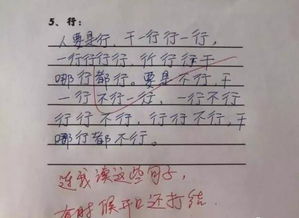 5、行:
人要是行,干一行行一行,
一行行行行,行行行干
哪行都行。要是不行,干
一行不行一行,一行不行
行行不行,行行不行,干
哪行都不行。
连我读这些句子,
有时候开口还打结.